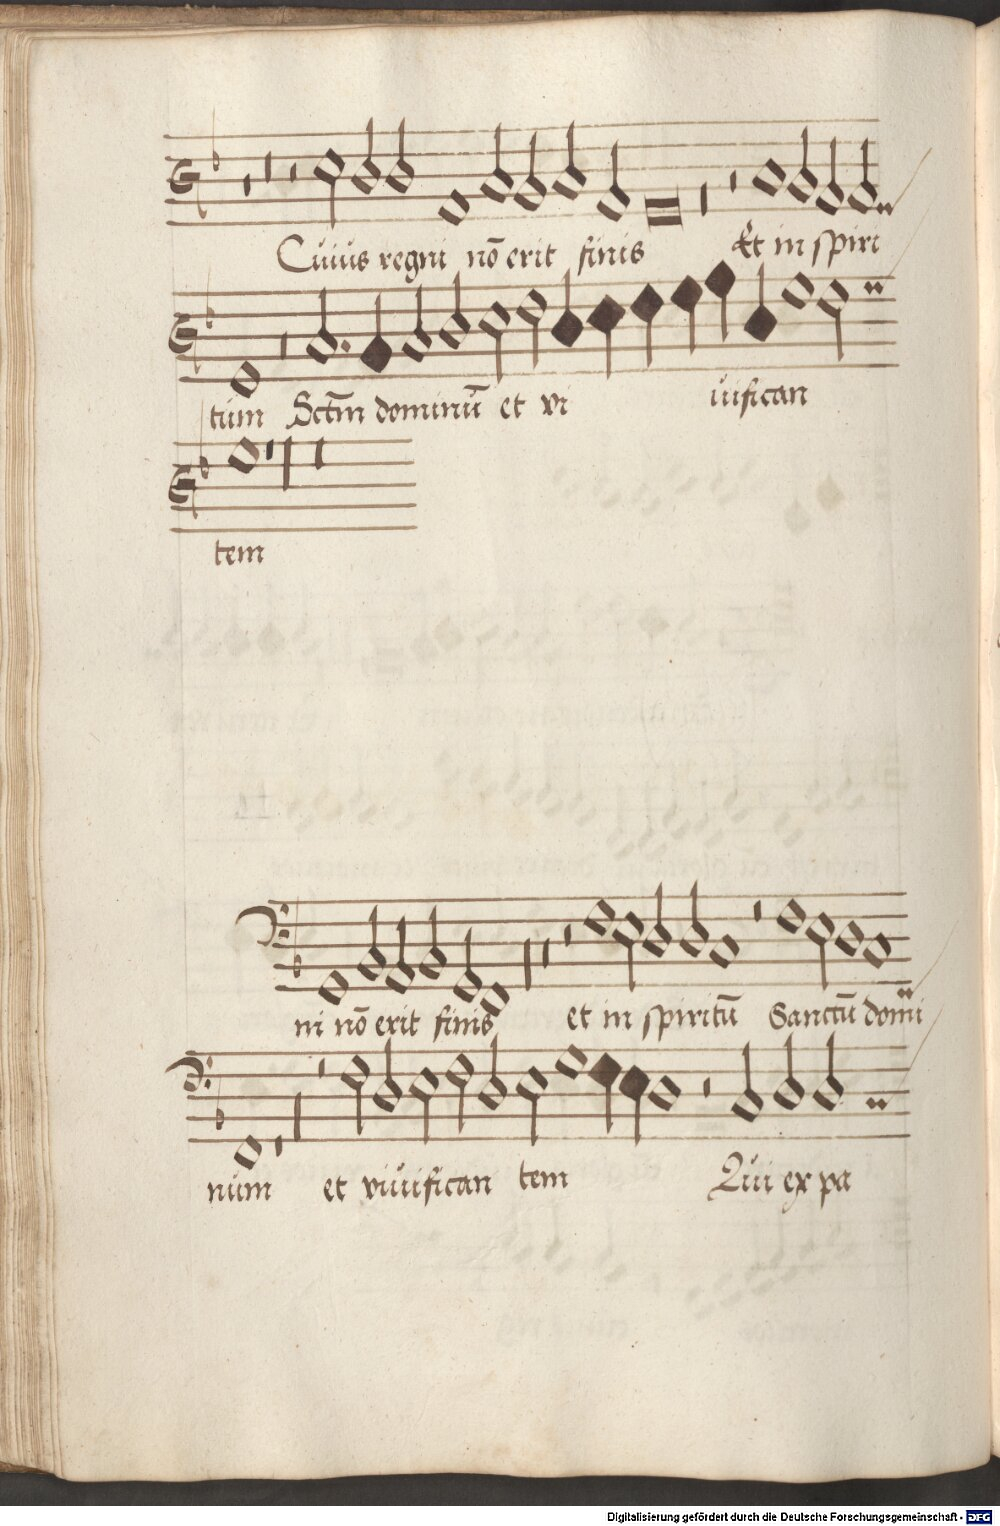 Cuius regni nō erit finis Et in spiri
tum Sctm̄ dominū et vi uifican
tem
ni nō erit finis et in spiritū Sanctū domi
num et viuifican tem Qui ex pa
Digitalisierung gefördert durch die Deutsche Forschungsgemeinschaft - DFG